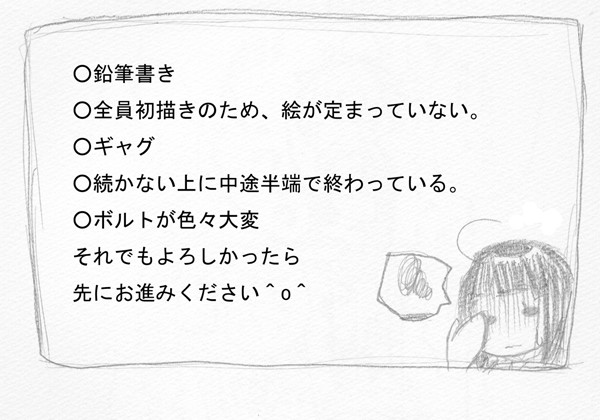 〇鉛筆書き
〇全員初描きのため、絵が定まっていない。
〇ギャグ
〇続かない上に中途半端で終わっている。
〇ボルトが色々大変
それでもよろしかったら
先にお進みください＾o＾